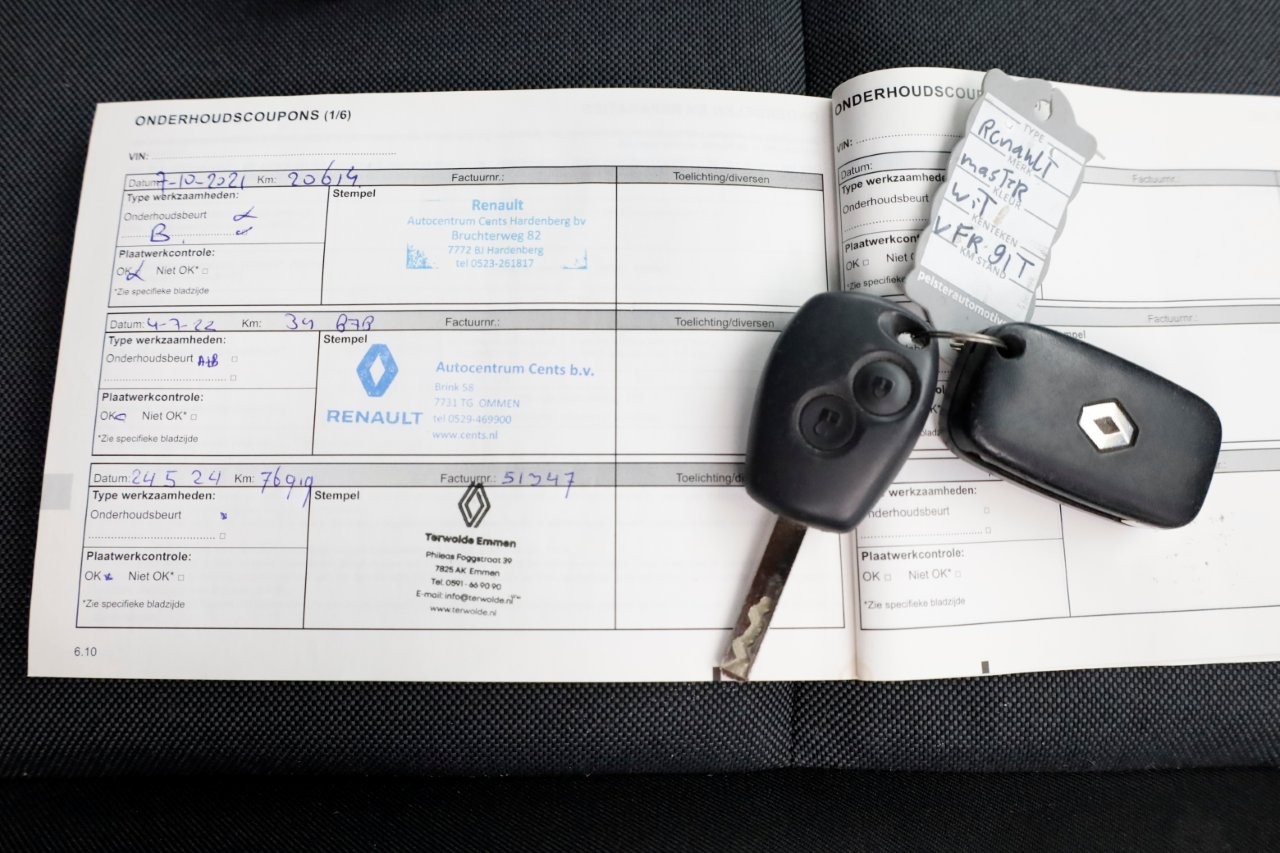 ONDERHOUDSCOUPONS (1/6)
VIN:
Datum: 7-10-2021 Km: 20614 Factuurnr.: Toelichting/diversen
Type werkzaamheden:
Onderhoudsbeurt
B
Plaatwerkcontrole:
OK Niet OK*
*Zie specifieke bladzijde
Stempel
Renault
Autocentrum Cents Hardenberg bv
Bruchterweg 82
7772 BJ Hardenberg
tel 0523-261817
Datum: 4-7-22 Km: 34 Factuurnr.: Toelichting/diversen
Type werkzaamheden:
Onderhoudsbeurt A+B
Plaatwerkcontrole:
OK Niet OK*
*Zie specifieke bladzijde
Stempel
RENAULT
Autocentrum Cents b.v.
Brink 58
7731 TG OMMEN
tel 0529-469900
www.cents.nl
Datum: 24 5 24 Km: 76919 Factuurnr.: 51347 Toelichting/di
Type werkzaamheden:
Onderhoudsbeurt
Plaatwerkcontrole:
OK Niet OK*
*Zie specifieke bladzijde
Stempel
Terwolde Emmen
Phileas Foggstraat 39
7825 AK Emmen
Tel. 0591 - 66 90 90
E-mail: info@terwolde.nl
www.terwolde.nl
6.10
ONDERHOUDSCOUP
VIN:
Datum: Factuurnr.:
Type werkzaamhede
Onderhoudsbeurt
Plaatwerkcon
OK Niet
*Zie specifieke
Factuurnr.:
mpel
werkzaamheden:
nderhoudsbeurt
Plaatwerkcontrole:
OK Niet OK*
*Zie specifieke bladzijde
TYPE
RenauLT
MERK
masTeR
KLEUR
wiT
KENTEKEN
VFR.91T
KM STAND
pelsterautomotive